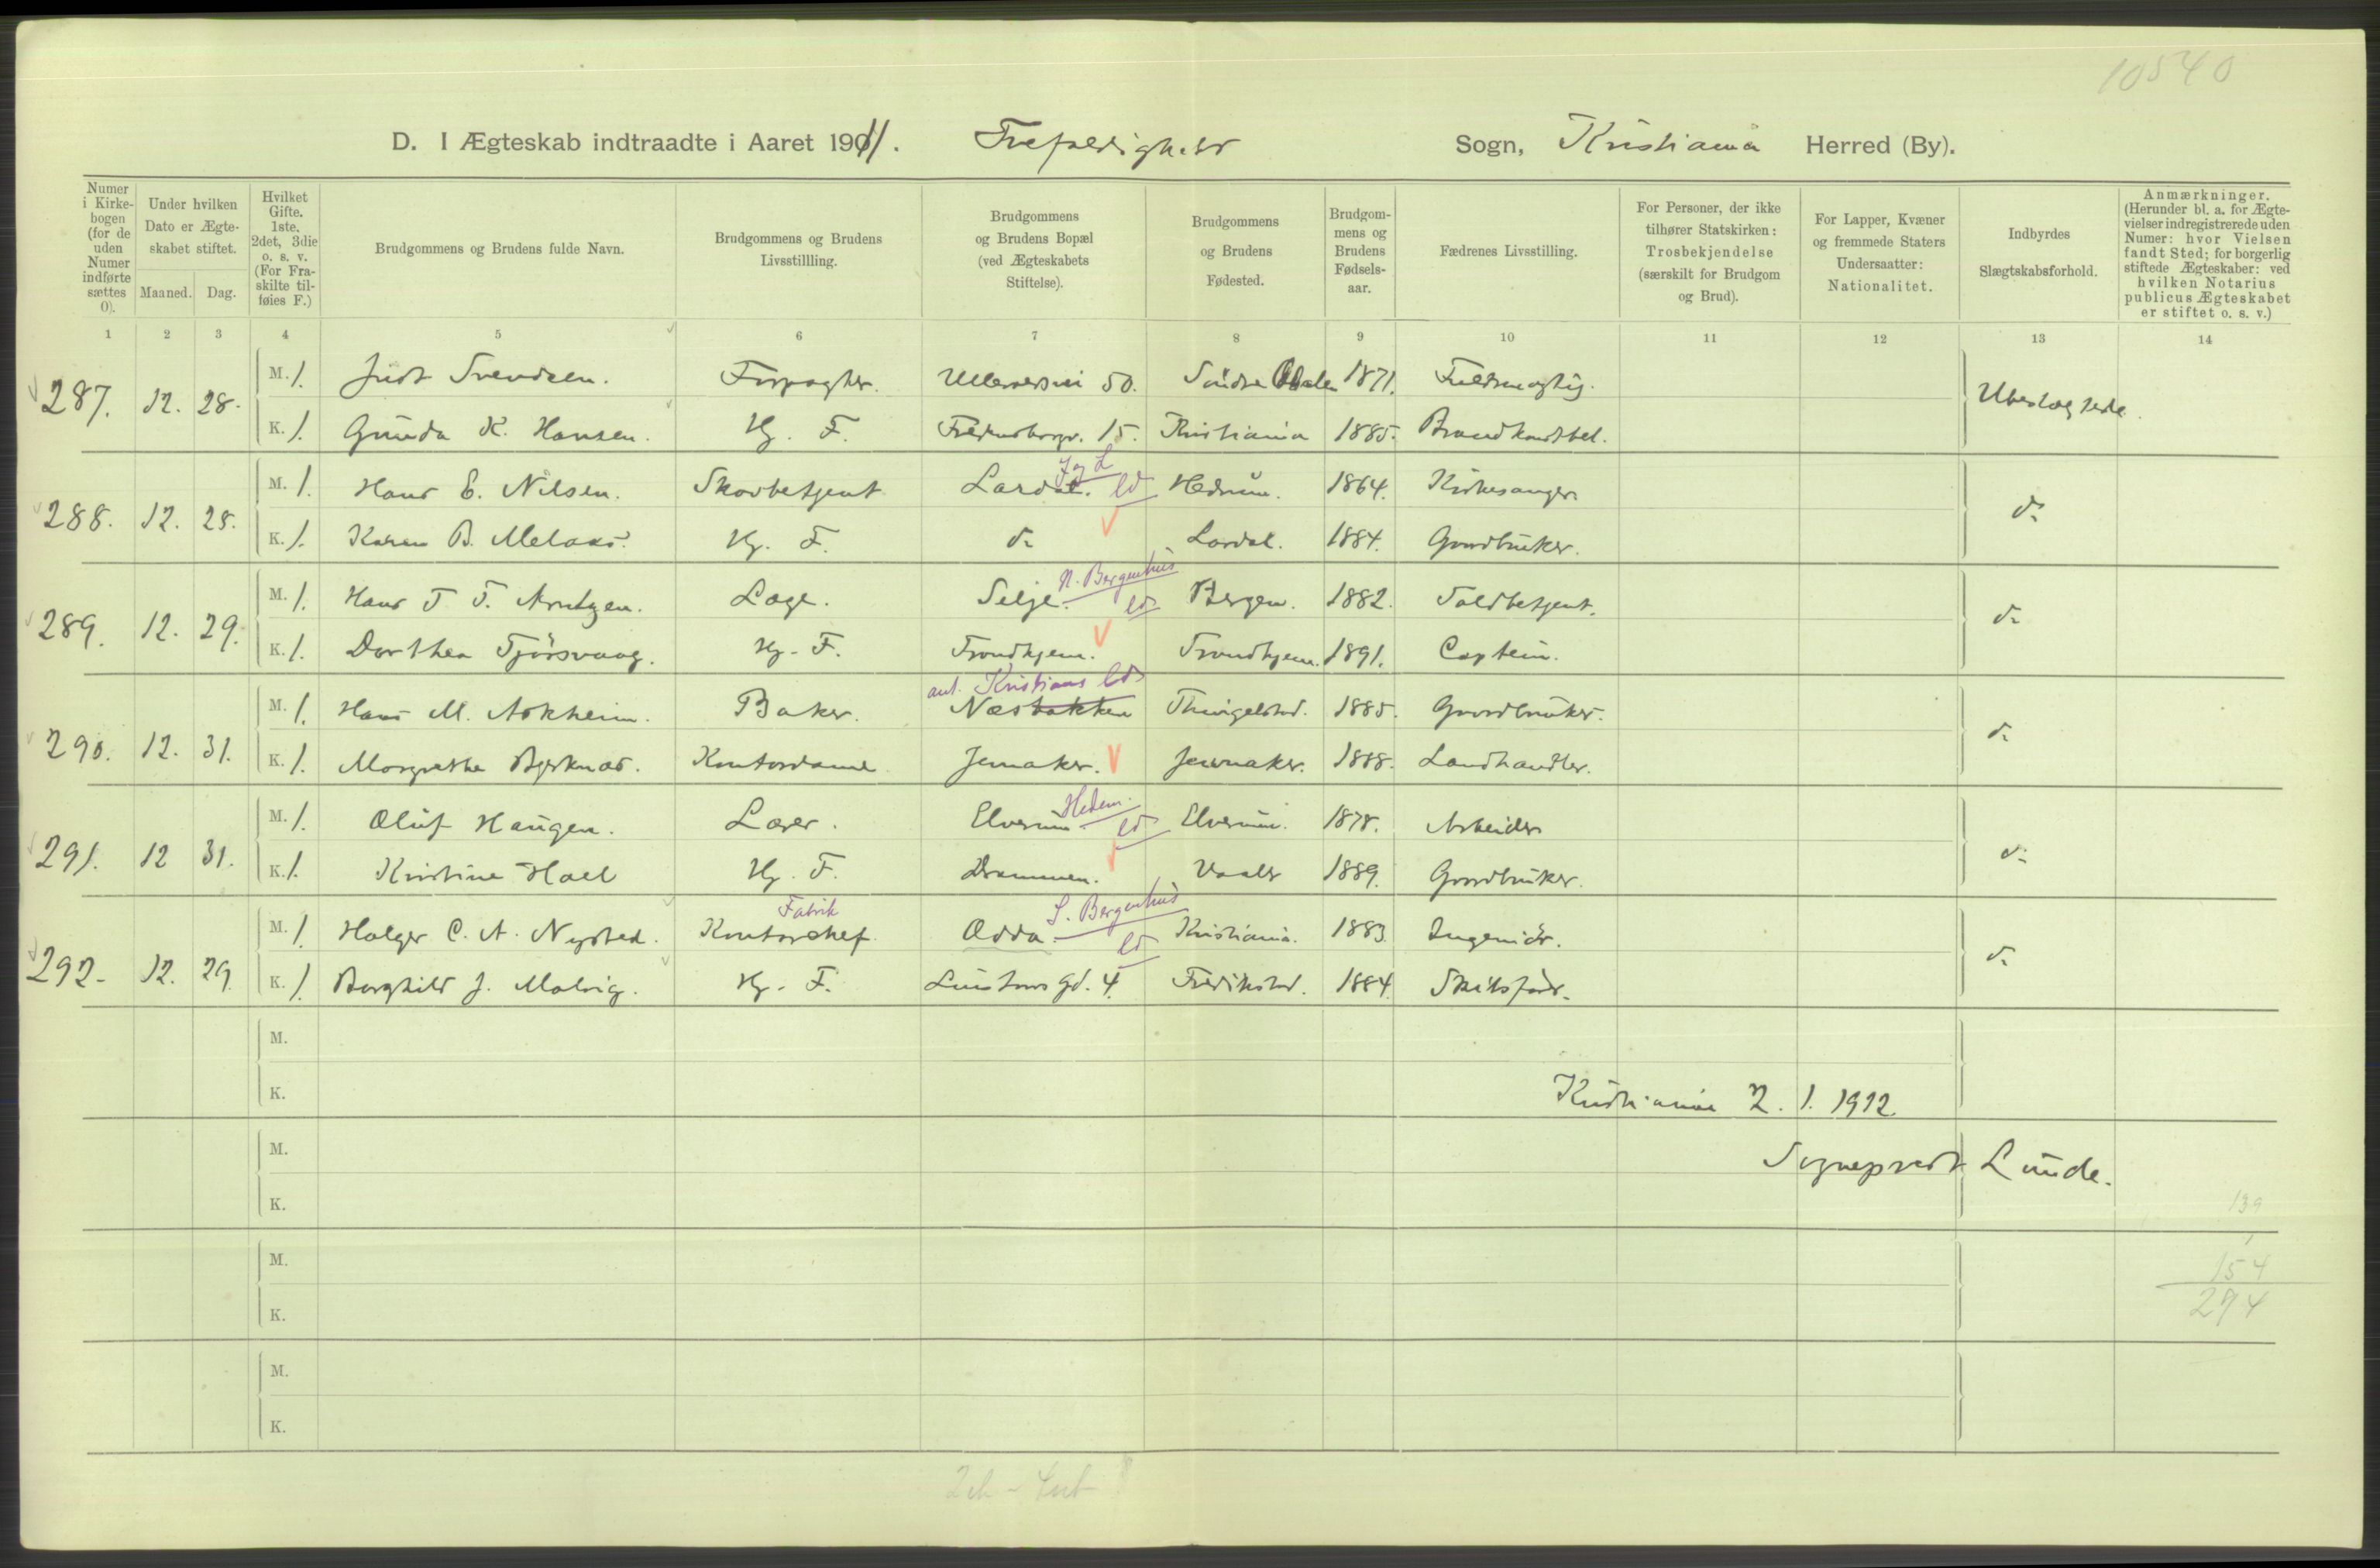 10540
D. I Ægteskab indtraadte i Aaret 1911. Trefoldighets Sogn, Kristiania Herred (By).
Numer i Kirkebogen (for de uden Numer indførte sættes 0).
Under hvilken Dato er Ægteskabet stiftet.
Maaned. Dag.
Hvilket Gifte. 1ste. 2det, 3die o. s. v. (For Fraskilte tilføies F.)
Brudgommens og Brudens fulde Navn.
Brudgommens og Brudens Livsstillling.
Brudgommens og Brudens Bopæl (ved Ægteskabets Stiftelse).
Brudgommens og Brudens Fødested.
Brudgommens og Brudens Fødselsaar.
Fædrenes Livsstilling.
For Personer, der ikke tilhører Statskirken: Trosbekjendelse (særskilt for Brudgom og Brud).
For Lapper, Kvæner og fremmede Staters Undersaatter: Nationalitet.
Indbyrdes Slægtskabsforhold.
Anmærkninger. (Herunder bl. a. for Ægtevielser indregistrerede uden Numer: hvor Vielsen fandt Sted; for borgerlig stiftede Ægteskaber: ved hvilken Notarius publicus Ægteskabet er stiftet o. s. v.)
1 2 3 4 5 6 7 8 9 10 11 12 13 14
287. 12. 28. M. 1. Just Svendsen. Forpagter. Ullevaalsvei 50. Søndre Odalen 1871. Fuldmægtig. Ubeslægtede
K. 1. Gunda K. Hansen. Hg. F. Fredensborgv. 15. Kristiania 1885. Brandkonstbel.
J. og L.
288. 12. 28. M. 1. Hans E. Nilsen. Skovbetjent Lardal. ld Hedrum. 1864. Kirkesanger. do
K. 1. Karen B. Melaas. Hg. F. do Lardal. 1884. Gaardbruker.
N. Bergenhus
289. 12. 29. M. 1. Hans T. F. Arntzen. Læge. Selje. ld Bergen. 1882. Toldbetjent. do
K. 1. Dorthea Tjørsvaag. Hg. F. Trondhjem. Trondhjem. 1891. Captein.
ant. Kristians ld
290. 12. 31. M. 1. Hans M. Askheim. Baker. Næsbakken Thingelstad. 1885. Gaardbruker. do
K. 1. Margrethe Bjerknæs. Kontordame Jevnaker. Jevnaker. 1888. Landhandler.
Hedem.
291. 12 31. M. 1. Oluf Haugen. Lærer. Elverum ld Elverum. 1878. Arbeider do
K. 1. Kristine Hoel Hg. F. Drammen. Vaaler 1889. Gaardbruker.
Fabrik S. Bergenhus
292. 12. 29. M. 1. Holger C. A. Nysted. Kontorchef. Odda. ld Kristiania. 1883. Ingeniør. do
K. 1. Borghild J. Malvig. Hg. F. Linstows gd. 4. Fredrikstad. 1884. Skibsfører.
M.
K.
Kristiania 2. 1. 1912.
M.
Sogneprest Lunde.
K.
139
M.
154
K.
274
M.
K.